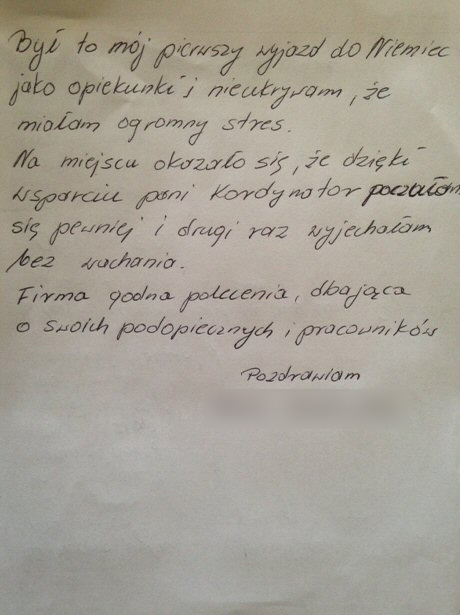 Był to mój pierwszy wyjazd do Niemiec
jako opiekunki i nieukrywam, że
miałam ogromny stres.
Na miejscu okazało się, że dzięki
wsparciu pani kordynator poczułam
się pewniej i drugi raz wyjechałam
bez wachania.
Firma godna polecenia, dbająca
o swoich podopiecznych i pracowników
Pozdrawiam